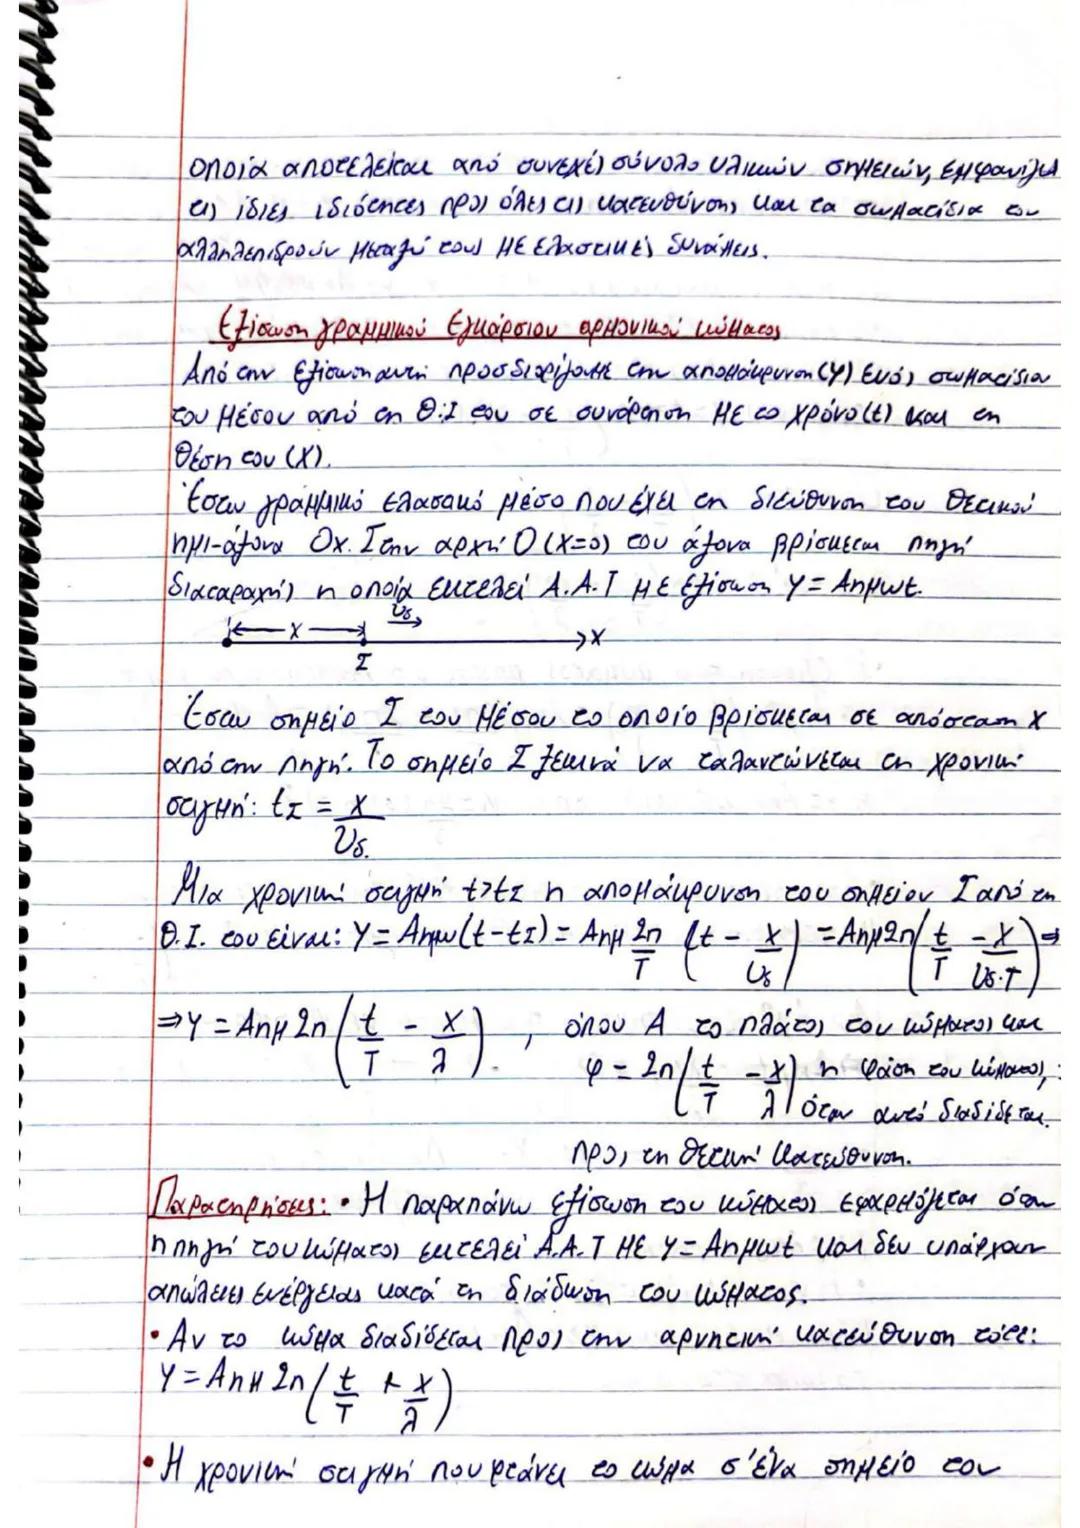 οποία αποτελείται από συνεχές σύνολο υλικών σημείων, εμφανίζει
τις ίδιες ιδιότητες προς όλες τις κατευθύνσεις και τα σωματίδια του
αλληλεπιδρούν μεταξύ τους με ελαστικές δυνάμεις.
Εξίσωση γραμμικού εγκάρσιου αρμονικού κύματος
Από την εξίσωση αυτή προσδιορίζουμε την απομάκρυνση (y) ενός σωματιδίου
του μέσου από τη Θ.Ι του σε συνάρτηση με το χρόνο (t) και τη
θέση του (x).
Έστω γραμμικό ελαστικό μέσο που έχει τη διεύθυνση του θετικού
ημι-άξονα Ox. Στην αρχή O (x=0) του άξονα βρίσκεται πηγή
διαταραχής η οποία εκτελεί Α.Α.Τ με εξίσωση y = Aημωt.
x υδ x
Σ
Έστω σημείο Σ του μέσου το οποίο βρίσκεται σε απόσταση x
από την πηγή. Το σημείο Σ ξεκινά να ταλαντώνεται τη χρονική
στιγμή: tΣ = x/υδ.
Μια χρονική στιγμή t>tΣ η απομάκρυνση του σημείου Σ από τη
Θ.Ι. του είναι: y = Aημω(t-tΣ) = Aημ 2π/T (t - x/υδ) = Aημ2π(t/T - x/υδ·T) ⇒
⇒ y = Aημ 2π(t/T - x/λ), όπου A το πλάτος του κύματος και
φ = 2π(t/T - x/λ) η φάση του κύματος,
όταν αυτό διαδίδεται
προς τη θετική κατεύθυνση.
Παρατηρήσεις: • Η παραπάνω εξίσωση του κύματος εφαρμόζεται όταν
η πηγή του κύματος εκτελεί Α.Α.Τ με y = Aημωt και δεν υπάρχουν
απώλειες ενέργειας κατά τη διάδοση του κύματος.
• Αν το κύμα διαδίδεται προς την αρνητική κατεύθυνση τότε:
y = Aημ 2π(t/T + x/λ)
• Η χρονική στιγμή που φτάνει το κύμα σ' ένα σημείο του